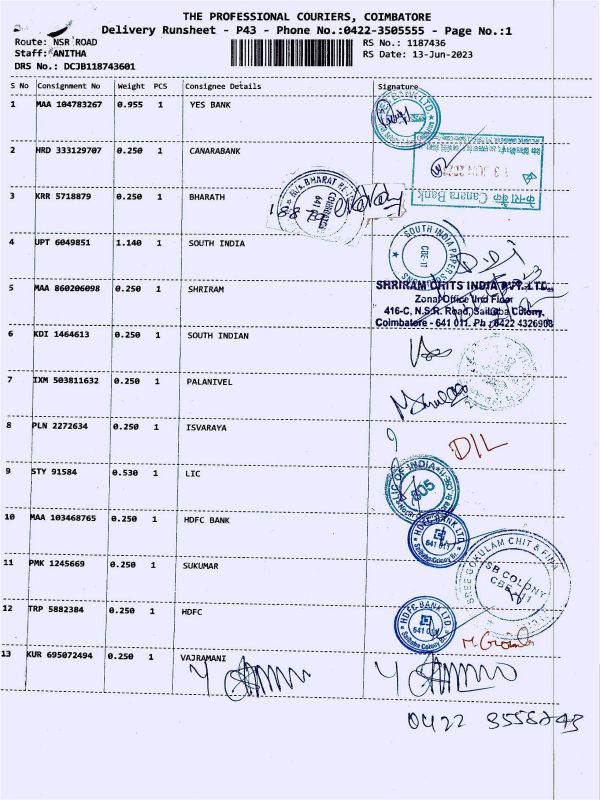 THE PROFESSIONAL COURIERS, COIMBATORE
Delivery Runsheet - P43 - Phone No.:0422-3505555 - Page No.:1
Route: NSR ROAD RS No.: 1187436
Staff: ANITHA RS Date: 13-Jun-2023
DRS No.: DCJB118743601
S No Consignment No Weight PCS Consignee Details Signature
1 MAA 104783267 0.955 1 YES BANK
2 HRD 333129707 0.250 1 CANARABANK
केनरा बैंक Canara Bank
3 KRR 5718879 0.250 1 BHARATH
4 UPT 6049851 1.140 1 SOUTH INDIA
SOUTH INDIA PAPER
CBE-11
5 MAA 860206098 0.250 1 SHRIRAM
SHRIRAM CHITS INDIA PVT. LTD.,
Zonal Office IInd Floor
416-C, N.S.R. Road, Saibaba Colony,
Coimbatore - 641 011. Ph : 0422 4326908
6 KDI 1464613 0.250 1 SOUTH INDIAN
7 IXM 503811632 0.250 1 PALANIVEL
8 PLN 2272634 0.250 1 ISVARAYA
DIL
9 STY 91584 0.530 1 LIC
LIC OF INDIA
805
10 MAA 103468765 0.250 1 HDFC BANK
HDFC BANK LTD
641 011
Saibaba Colony Br.
11 PMK 1245669 0.250 1 SUKUMAR
SREE GOKULAM CHIT & FINA
SB COLONY
CBE-11
12 TRP 5882384 0.250 1 HDFC
HDFC BANK LTD
641 011
Saibaba Colony Br.
13 KUR 695072494 0.250 1 VAJRAMANI
0422